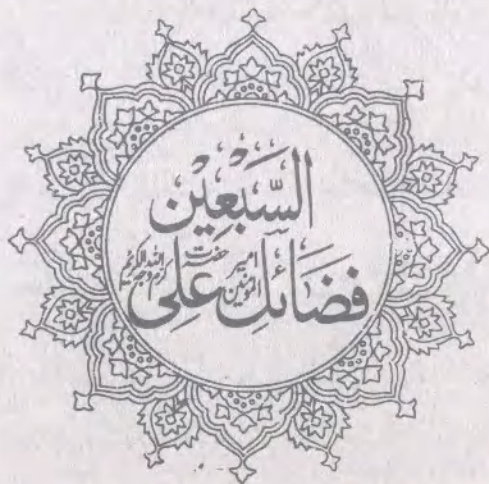 السَّبْعِيْن
فَضَائِلِ امیر المومنین حضرت عَلِی کرم اللہ وجہہ الکریم